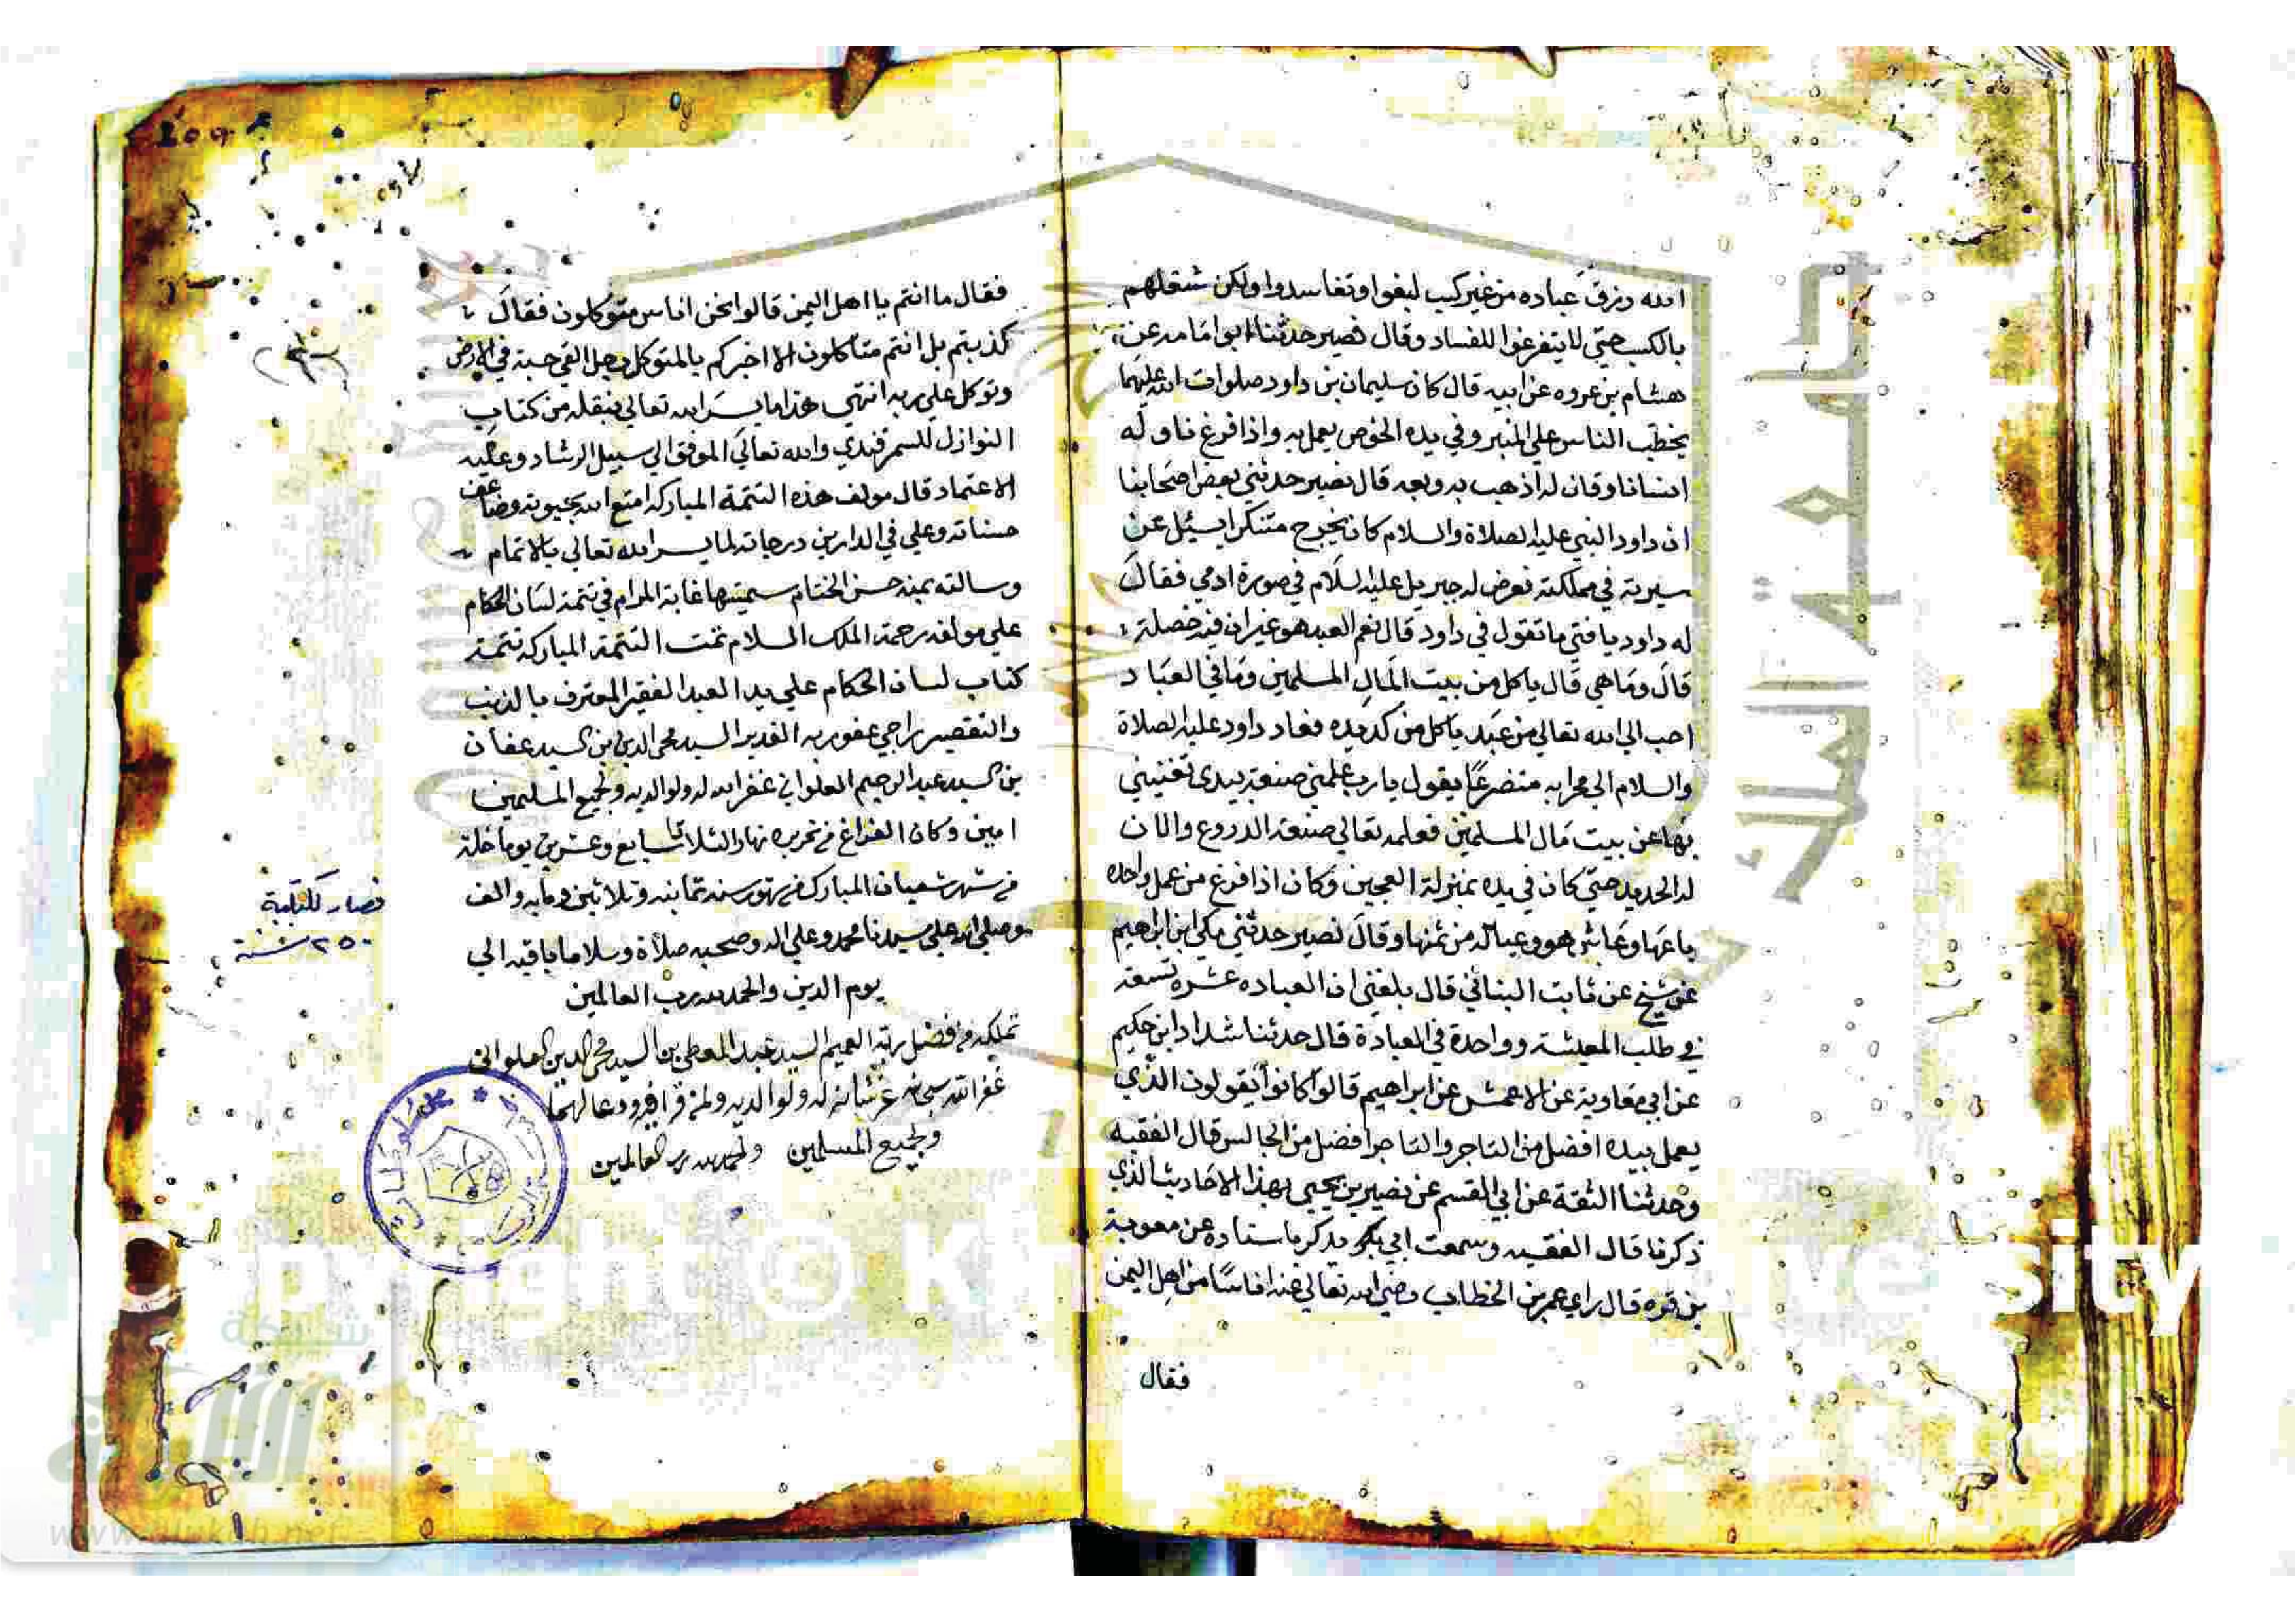 الله رزق عباده من غير كسب لبغوا وتفاسدوا ولكن شغلهم
بالكسب حتي لا يتفرغوا للفساد وقال نصير حدثنا ابوامامه عن
هشام بن عروه عن ابيه قال كان سليمان بن داود صلوات الله عليهما
يخطب الناس علي المنبر وفي يده الخوص يعمل به واذا فرغ ناوله
انسانا وقال له اذهب به وبعه قال نصير حدثني بعض اصحابنا
ان داود النبي عليه الصلاة والسلام كان يخرج متنكرا يسئل عن
سيرته في مملكته فعرض له جبريل عليه السلام في صورة ادمي فقال
له داود يا فتي ما تقول في داود قال نعم العبد هو غير ان فيه خصلة
قال وما هي قال ياكل من بيت المال المسلمين وما في العباد
احب الي الله تعالي من عبد ياكل من كد يده فعاد داود عليه الصلاة
والسلام الي محرابه متضرعا يقول يا رب علمني صنعة بيدي تغنيني
بها عن بيت مال المسلمين فعلمه تعالي صنعة الدروع والان
له الحديد حتي كان في يده بمنزلة العجين وكان اذا فرغ من عمل واحده
باعها وعاش هو وعياله من ثمنها وقال نصير حدثني مكي ابن ابراهيم
عن شيخ عن ثابت البناني قال بلغني ان العباده عشرة تسعة
في طلب المعيشة وواحدة في العبادة قال حدثنا شداد ابن حكيم
عن ابي معاوية عن الاعمش عن ابراهيم قالوا كانوا يقولون الذي
يعمل بيده افضل من التاجر والتاجر افضل من الجالس قال الفقيه
وحدثنا الثقة عن ابي القسم عن نصير بن يحيي بهذا الاحاديث الذي
ذكرنا قال الفقيه وسمعت ابي يذكر باسناده عن معوية
بن قره قال راي عمر بن الخطاب رضي الله تعالي عنه اناسا من اهل اليمن
فقال
فقال ما انتم يا اهل اليمن قالوا نحن اناس متوكلون فقال
كذبتم بل انتم متاكلون الا اخبركم بالمتوكل رجل القي حبة في الارض
وتوكل علي ربه انتهي هذا ما يسر الله تعالي بنقله من كتاب
النوازل للسمرقندي والله تعالي الموفق الي سبيل الرشاد وعليه
الاعتماد قال مولف هذه التتمة المباركه امتع الله بحيوته وضاعف
حسناته وعلي في الدارين درجاته لما يسر الله تعالي بالاتمام
وسالته بمنه حسن الختام سميتها غاية المرام في تتمة لسان الحكام
علي مولفه رحمة الملك السلام تمت التتمة المباركه تتمة
كتاب لسان الحكام علي يد العبد الفقير المعترف بالذنب
والتقصير راجي عفو ربه القدير السيد محي الدين بن السيد عفان
بن السيد عبد الرحيم العلواني غفر الله له ولوالديه ولجميع المسلمين
امين وكان الفراغ من تحريره نهار الثلاثا سابع وعشرين يوما خلت
من شهر شعبان المبارك من شهور سنه ثمانيه وثلاثين ومايه والف
وصلي الله علي سيدنا محمد وعلي اله وصحبه صلاة وسلاما باقيه الي
يوم الدين والحمد لله رب العالمين
تملكه من افضل ربه العميم السيد عبد المعطي بن السيد محي الدين العلواني
غفر الله سبحانه عز شانه له ولوالديه ولمن قرا فيه ودعا لهما
ولجميع المسلمين والحمد لله رب العالمين
فصار لكتابة
٢٥٠ سنة
جامعة الملك
شبكة
الألوكة
www.alukah.net